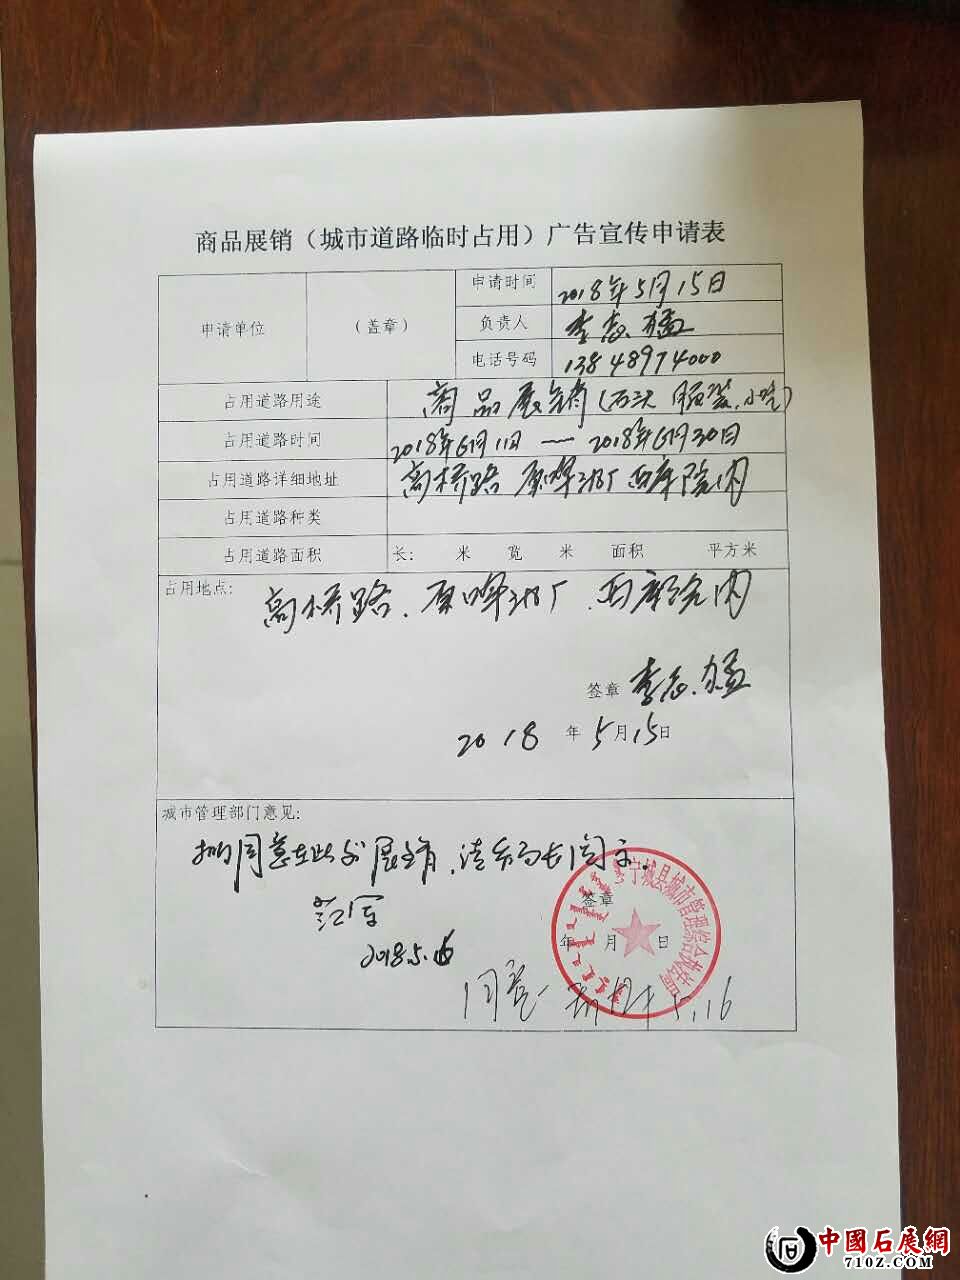 商品展销（城市道路临时占用）广告宣传申请表
申请单位 （盖章） 申请时间 2018年5月15日
负责人 李志猛
电话号码 13848974000
占用道路用途 商品展销（石头 服装、小吃）
占用道路时间 2018年6月1日 — 2018年6月30日
占用道路详细地址 高桥路 原啤酒厂西库院内
占用道路种类
占用道路面积 长： 米 宽 米 面积 平方米
占用地点: 高桥路、原啤酒厂、西库院内
签章 李志猛
2018 年 5月15日
城市管理部门意见:
拟同意在此处展销，请 局长阅示。
签章
2018.5.16
年 月 日
宁城县城市管理综合执法局
同意 5.16
中國石展網
710Z.COM